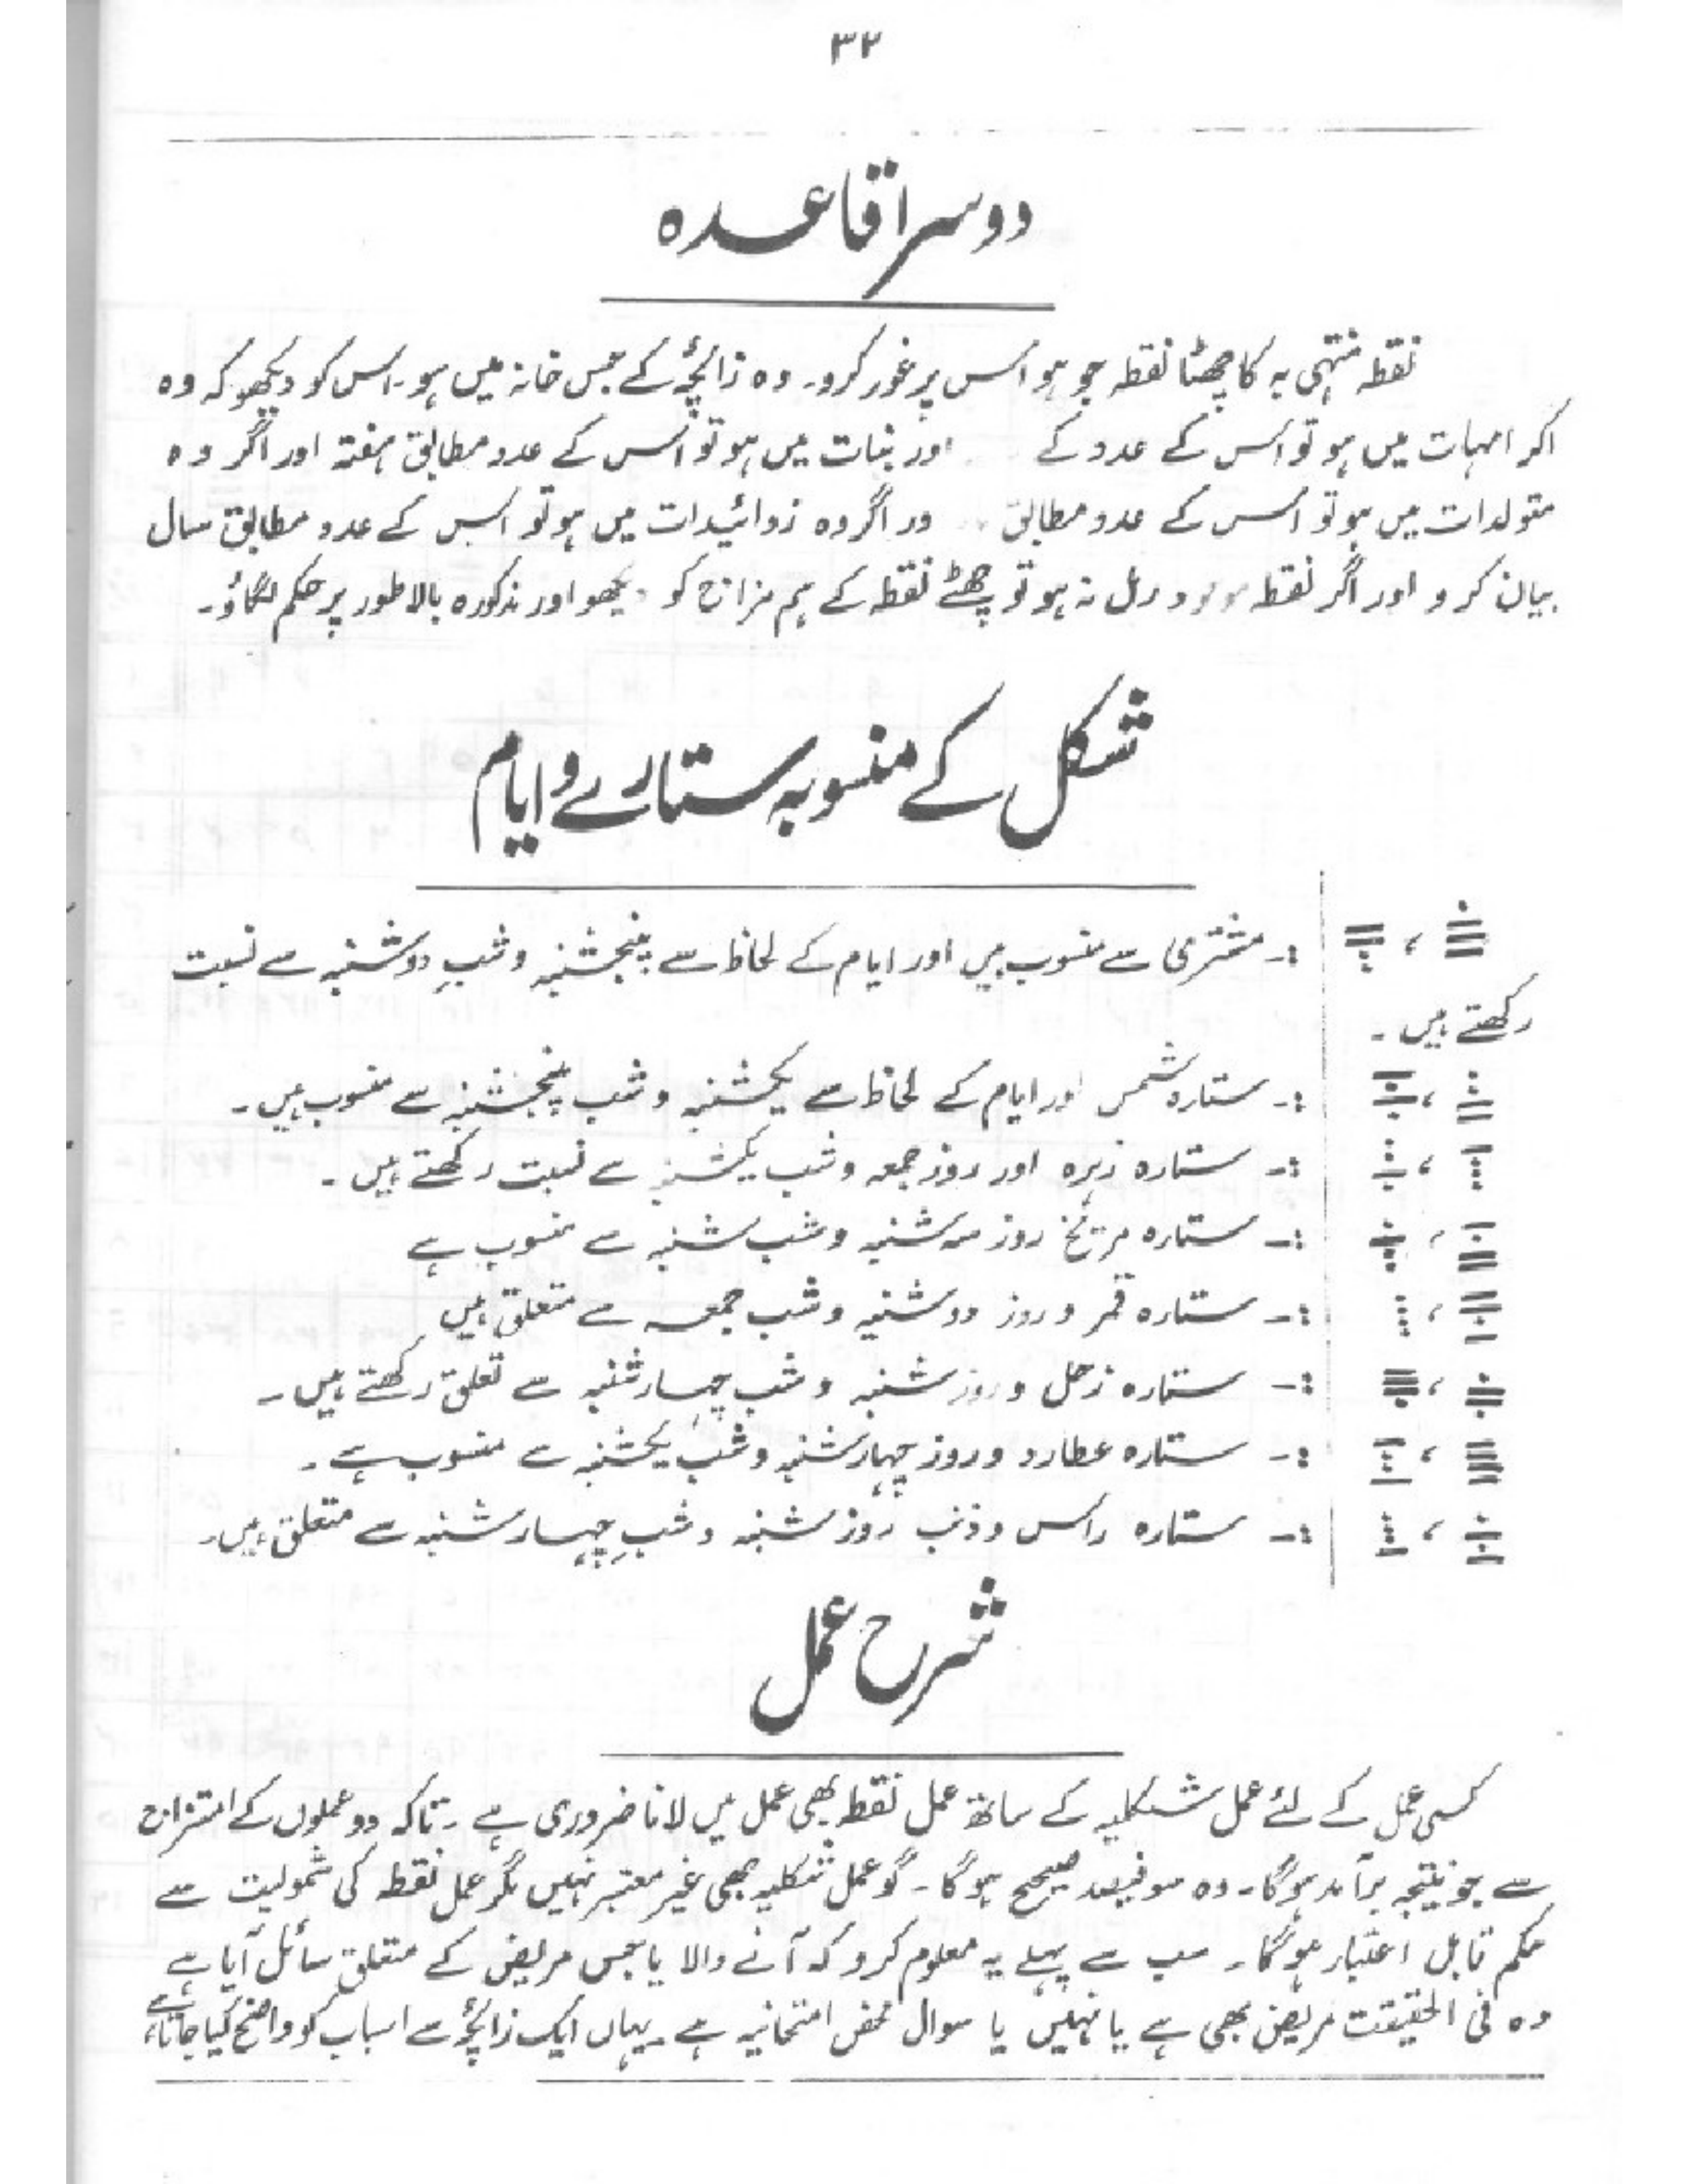 ۳۲
دوسرا قاعدہ
نقطہ منتہی بہ کا چھٹا نقطہ جو ہو اس پر غور کرو۔ وہ زائچہ کے جس خانہ میں ہو۔ اس کو دیکھو کہ وہ
اگر امہات میں ہو تو اس کے عدد کے اور بنات میں ہو تو اس کے عدد مطابق ہفتہ اور اگر وہ
متولدات میں ہو تو اس کے عدد مطابق ور اگر وہ زوائیدات میں ہو تو اس کے عدد مطابق سال
بیان کرو اور اگر نقطہ رمل نہ ہو تو چھٹے نقطہ کے ہم مزاج کو دیکھو اور مذکورہ بالا طور پر حکم لگاؤ۔
شکل کے منسوبہ ستارے و ایام
:۔ مشتری سے منسوب ہیں اور ایام کے لحاظ سے پنجشنبہ و شبِ دوشنبہ سے نسبت
رکھتے ہیں۔
:۔ ستارہ شمس اور ایام کے لحاظ سے یکشنبہ و شب پنجشنبہ سے منسوب ہیں۔
:۔ ستارہ زہرہ اور روز جمعہ و شب یکشنبہ سے نسبت رکھتے ہیں۔
:۔ ستارہ مریخ روز سہ شنبہ و شب شنبہ سے منسوب ہے
:۔ ستارہ قمر و روز دوشنبہ و شب جمعہ سے متعلق ہیں
:۔ ستارہ زحل و روز شنبہ و شب چہارشنبہ سے تعلق رکھتے ہیں۔
:۔ ستارہ عطارد و روز چہارشنبہ و شب یکشنبہ سے منسوب ہے۔
:۔ ستارہ راس و ذنب روز شنبہ و شبِ چہارشنبہ سے متعلق ہیں۔
شرح عمل
کسی عمل کے لئے عمل شکلیہ کے ساتھ عمل نقطہ بھی عمل میں لانا ضروری ہے۔ تاکہ دو عملوں کے امتزاج
سے جو نتیجہ برآمد ہوگا۔ وہ سو فیصد صحیح ہوگا۔ گو عمل شکلیہ بھی غیر معتبر نہیں مگر عمل نقطہ کی شمولیت سے
حکم قابل اعتبار ہوگا۔ سب سے پہلے یہ معلوم کرو کہ آنے والا یا جس مریض کے متعلق سائل آیا ہے
وہ فی الحقیقت مریض بھی ہے یا نہیں یا سوال محض امتحانیہ ہے۔ یہاں ایک زائچہ سے اسباب کو واضح کیا جاتا ہے